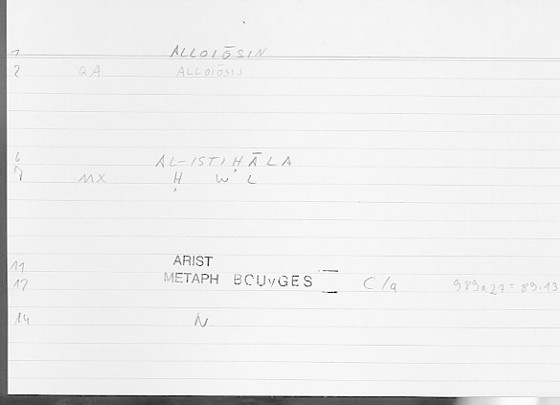 1 ALLOIŌSIN
2 QA ALLOIŌSIS
6 AL-ISTIḤĀLA
7 MX Ḥ W L
11 ARIST
12 METAPH BOUYGES C/a 989a27 = 89.13
14 N